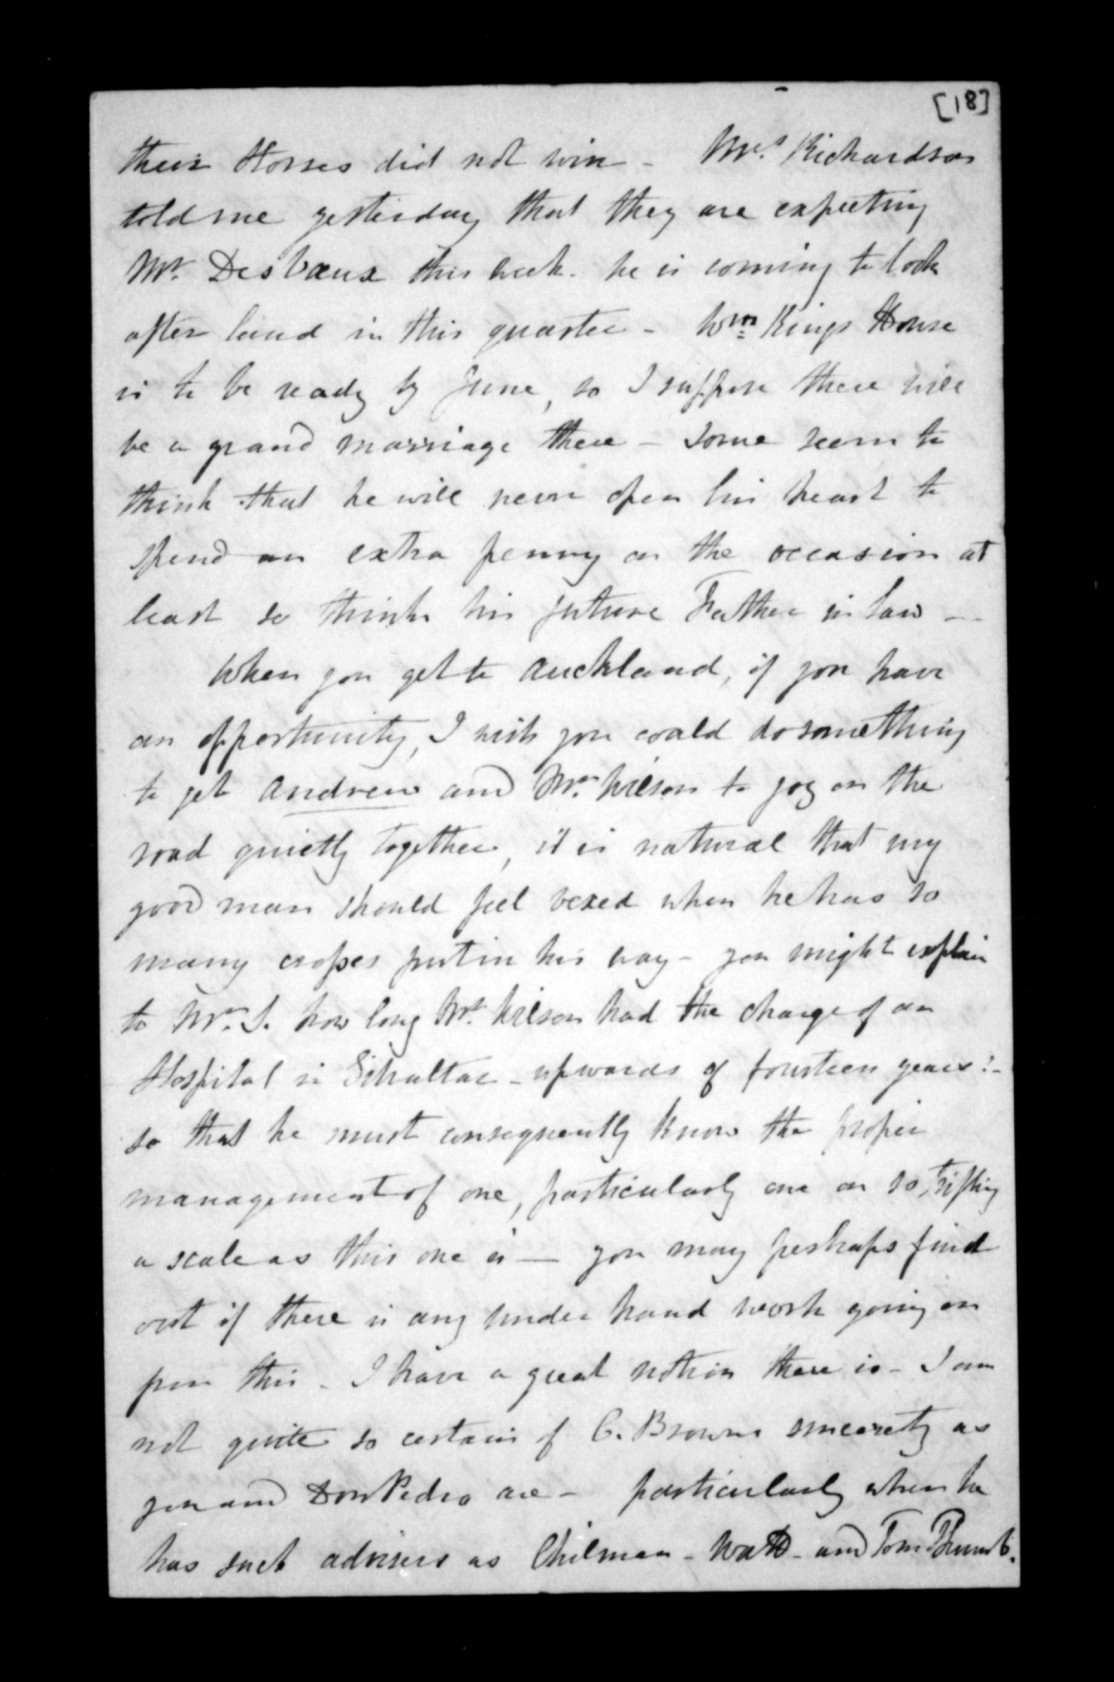 [18]
their Horses did not win - Mrs. Richardson
told me yesterday that they are expecting
Mr. DesVaux this week. he is coming to look
after land in this quarter - Wm Kings House
is to be ready by June, so I suppose there will
be a grand marriage there - some seem to
think that he will never open his heart to
spend an extra penny on the occasion at
least so thinks his future Father in law --
When you get to Auckland, if you have
an opportunity, I wish you could do something
to get Andrew and Mr. Wilson to jog on the
road quietly together, it is natural that my
good man should feel vexed when he has so
many crosses put in his way - you might explain
to Mr. S. how long Mr. Wilson had the charge of an
Hospital in Gibraltar - upwards of fourteen years! -
so that he must consequently know the proper
management of one, particularly one on so trifling
a scale as this one is — you may perhaps find
out if there is any under hand work going on
from this - I have a great notion there is - I am
not quite so certain of C. Browns sincerety as
you and Don Pedro are - particularly when he
has such advisers as Chilman - Watt - and Tom Thumb.